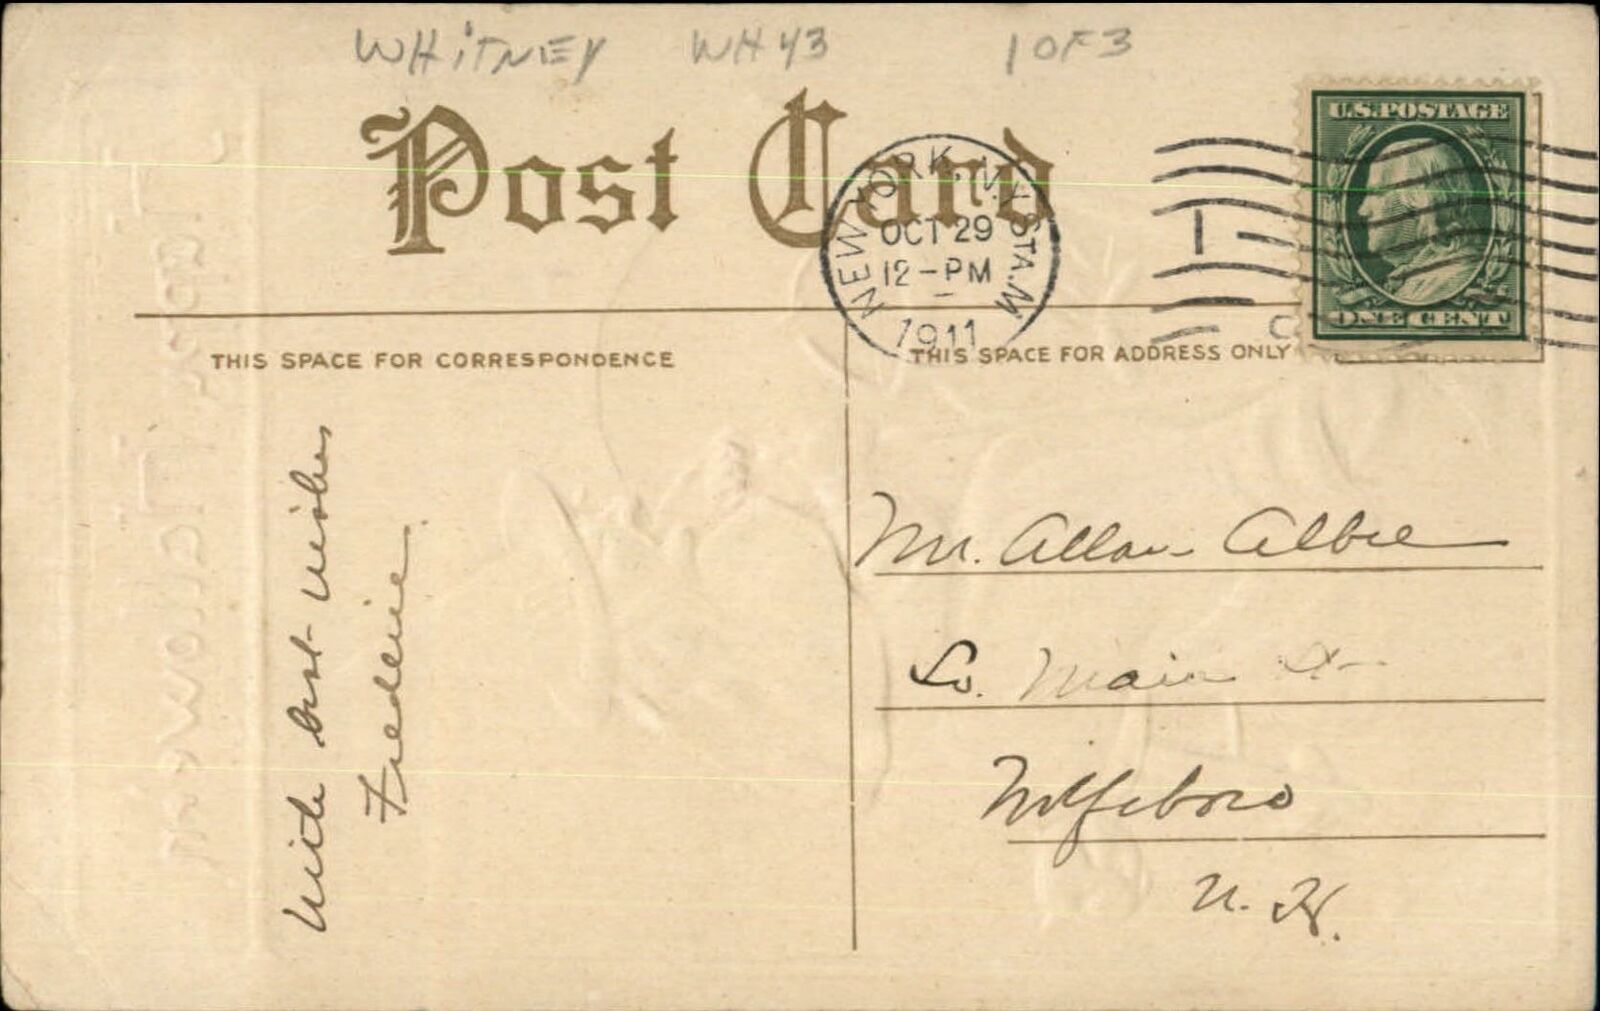 WHITNEY WH43 1 OF 3
Post Card
U.S. POSTAGE
ONE CENT
NEW YORK, N.Y. STA. M
OCT 29
12-PM
1911
1
THIS SPACE FOR CORRESPONDENCE
THIS SPACE FOR ADDRESS ONLY
With best wishes
Freddie.
Mr. Allan Albee
So. Main St
Wolfeboro
N. H.